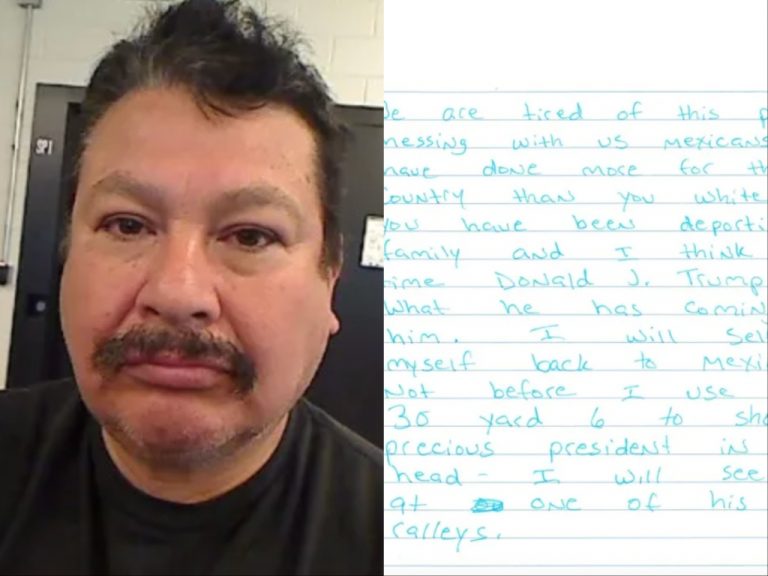 SPI
e are tired of this p
messing with us Mexicans
have done more for th
country than you white
you have been deporti
family and I think
ime Donald J. Trump
what he has comin
him. I will sel
myself back to Mexi
Not before I use
30 yard 6 to sho
precious president in
head - I will see
at one of his
ralleys.